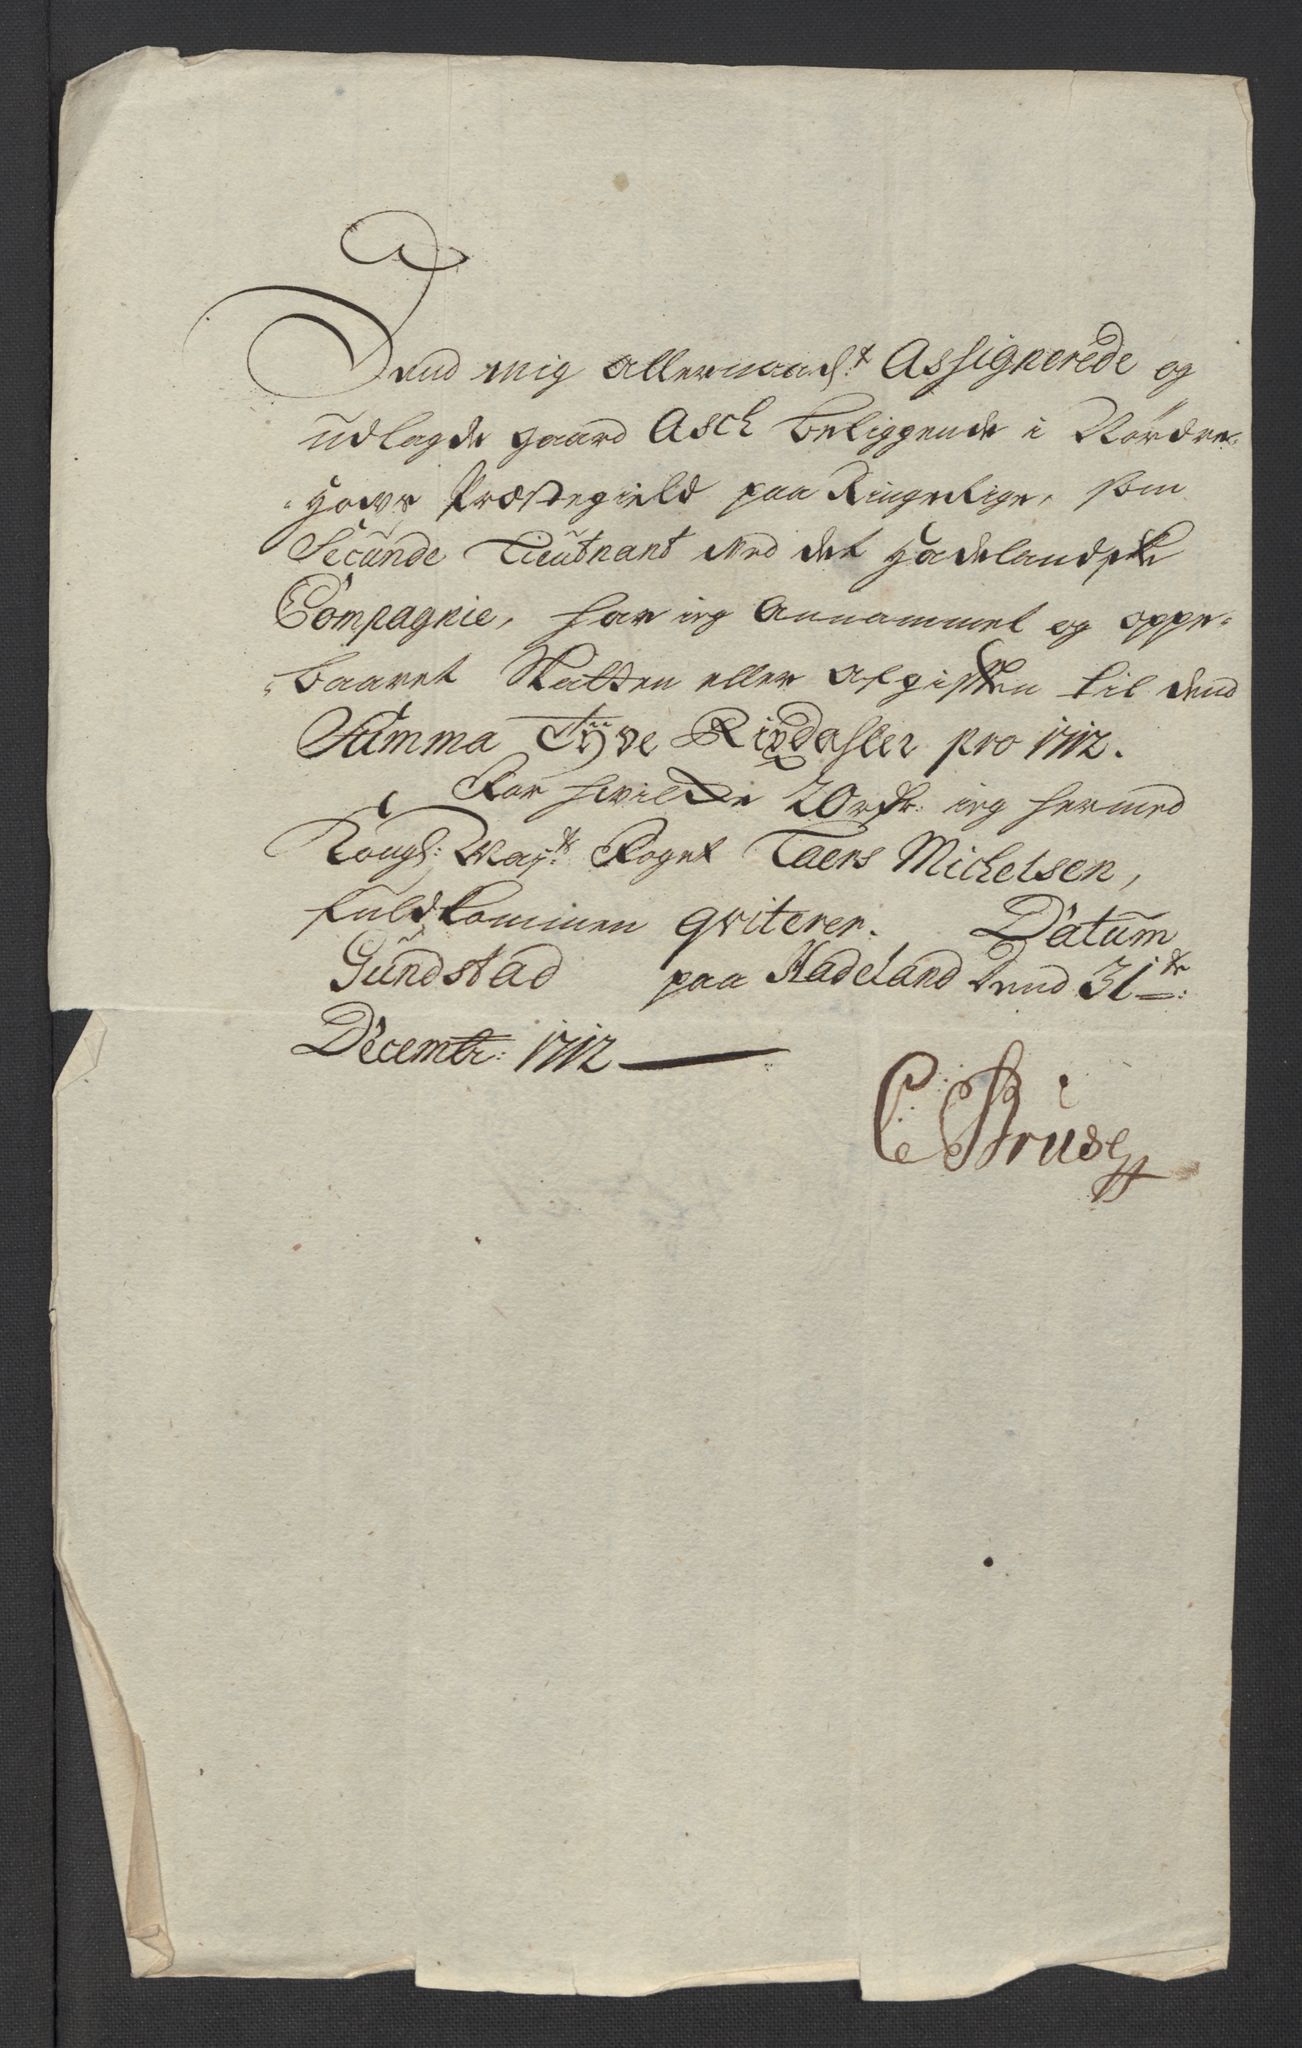 Dend mig allernaads:t Assignerede og
udlagde gaard Asch beliggende i Nordre-
-Hows Præstegield paa Ringerige, som
Secunde Lieutnant ved det Hadelandske
Compagnie, har ieg annammet og oppe-
-baaret Skatten eller afgiften til dend
Summa Tÿve Rixdahler pro 1712.
For hvilcke 20 rdr: ieg hermed
Kongl: May:ts Foget Laers Michelsen,
fuldkommen qviterer. Datum
Gundstad paa Hadeland dend 31te:
Decembr: 1712
C Bruse